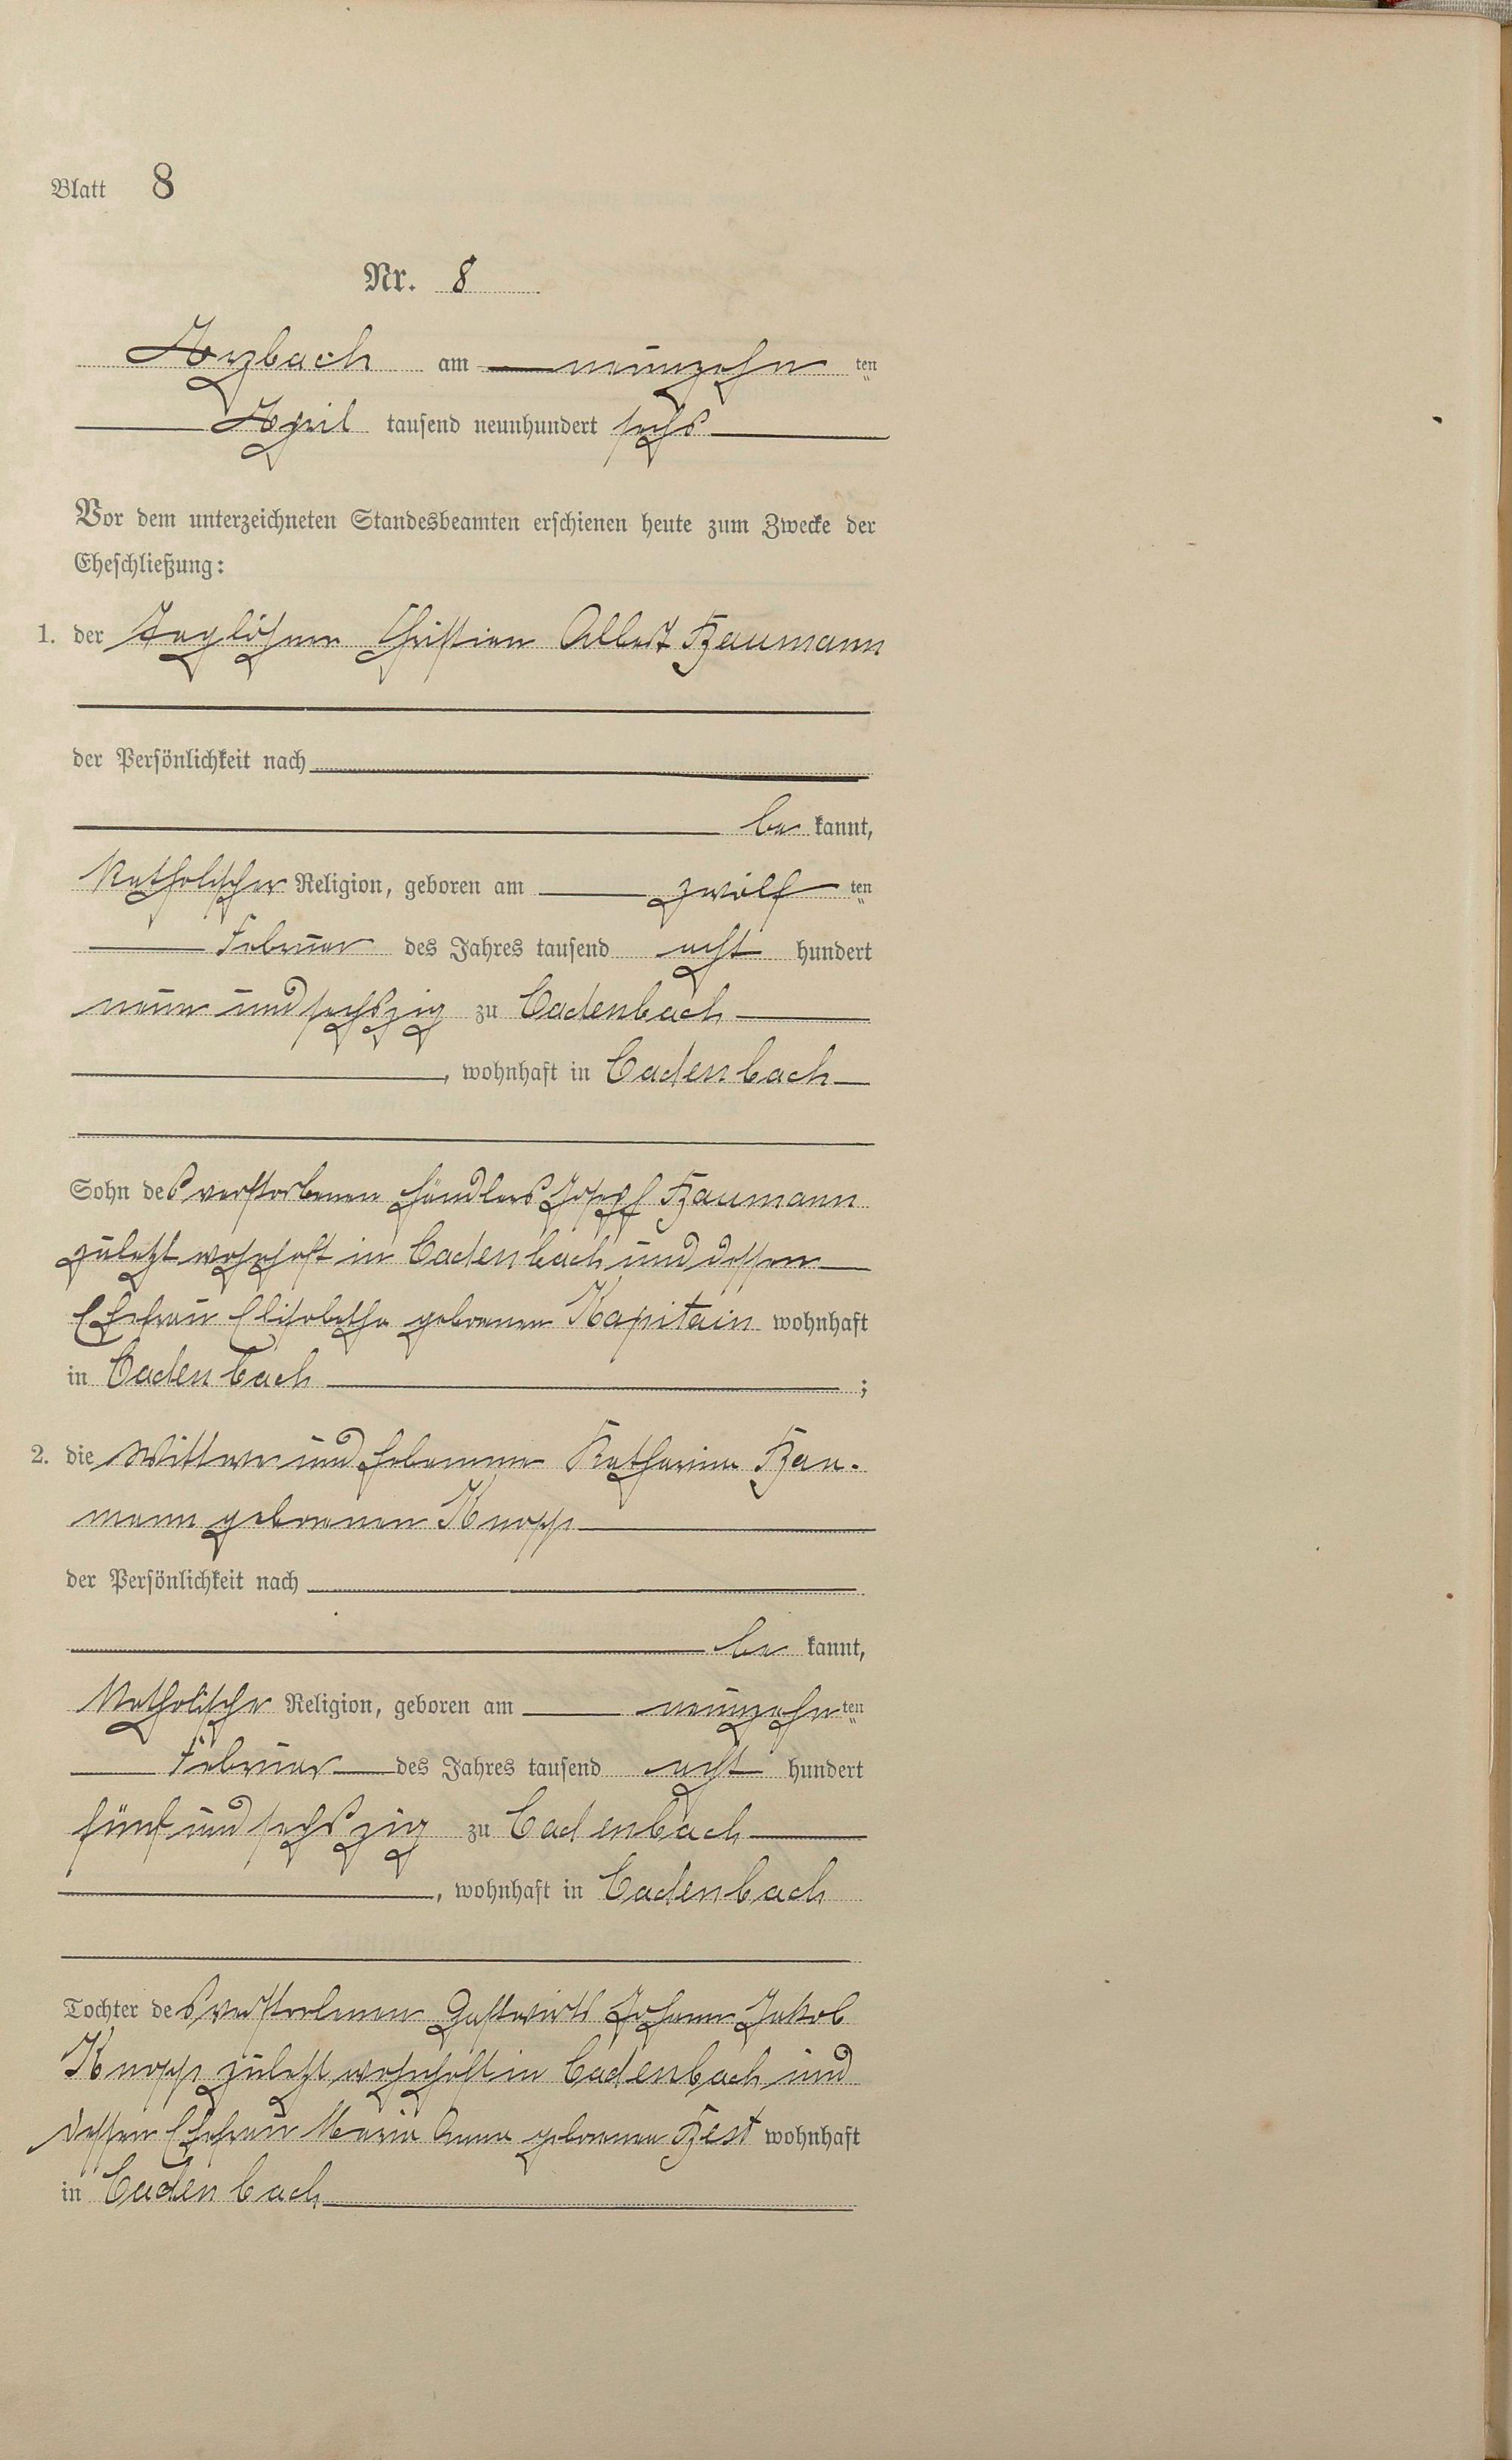 Blatt 8
Nr. 8
Arzbach am neunzehn ten
April tausend neunhundert sechs
Vor dem unterzeichneten Standesbeamten erschienen heute zum Zwecke der
Eheschließung:
1. der Taglöhner Christian Albert Baumann
der Persönlichkeit nach
be kannt,
katholischer Religion, geboren am zwölf ten
Februar des Jahres tausend acht hundert
neun und sechszig zu Cadenbach
, wohnhaft in Cadenbach
Sohn des verstorbenen Händlers Joseph Baumann
zuletzt wohnhaft in Cadenbach und dessen
Ehefrau Elisabetha geborenen Kapitain wohnhaft
in Cadenbach ;
2. die Wittwe und Hebamme Katharina Bau-
mann geborenen Knopp
der Persönlichkeit nach
be kannt,
katholischer Religion, geboren am neunzehn ten
Februar des Jahres tausend acht hundert
fünf und sechszig zu Cadenbach
, wohnhaft in Cadenbach
Tochter des verstorbenen Gastwirts Johann Jakob
Knopp zuletzt wohnhaft in Cadenbach und
dessen Ehefrau Maria Anna geborenen Best wohnhaft
in Cadenbach